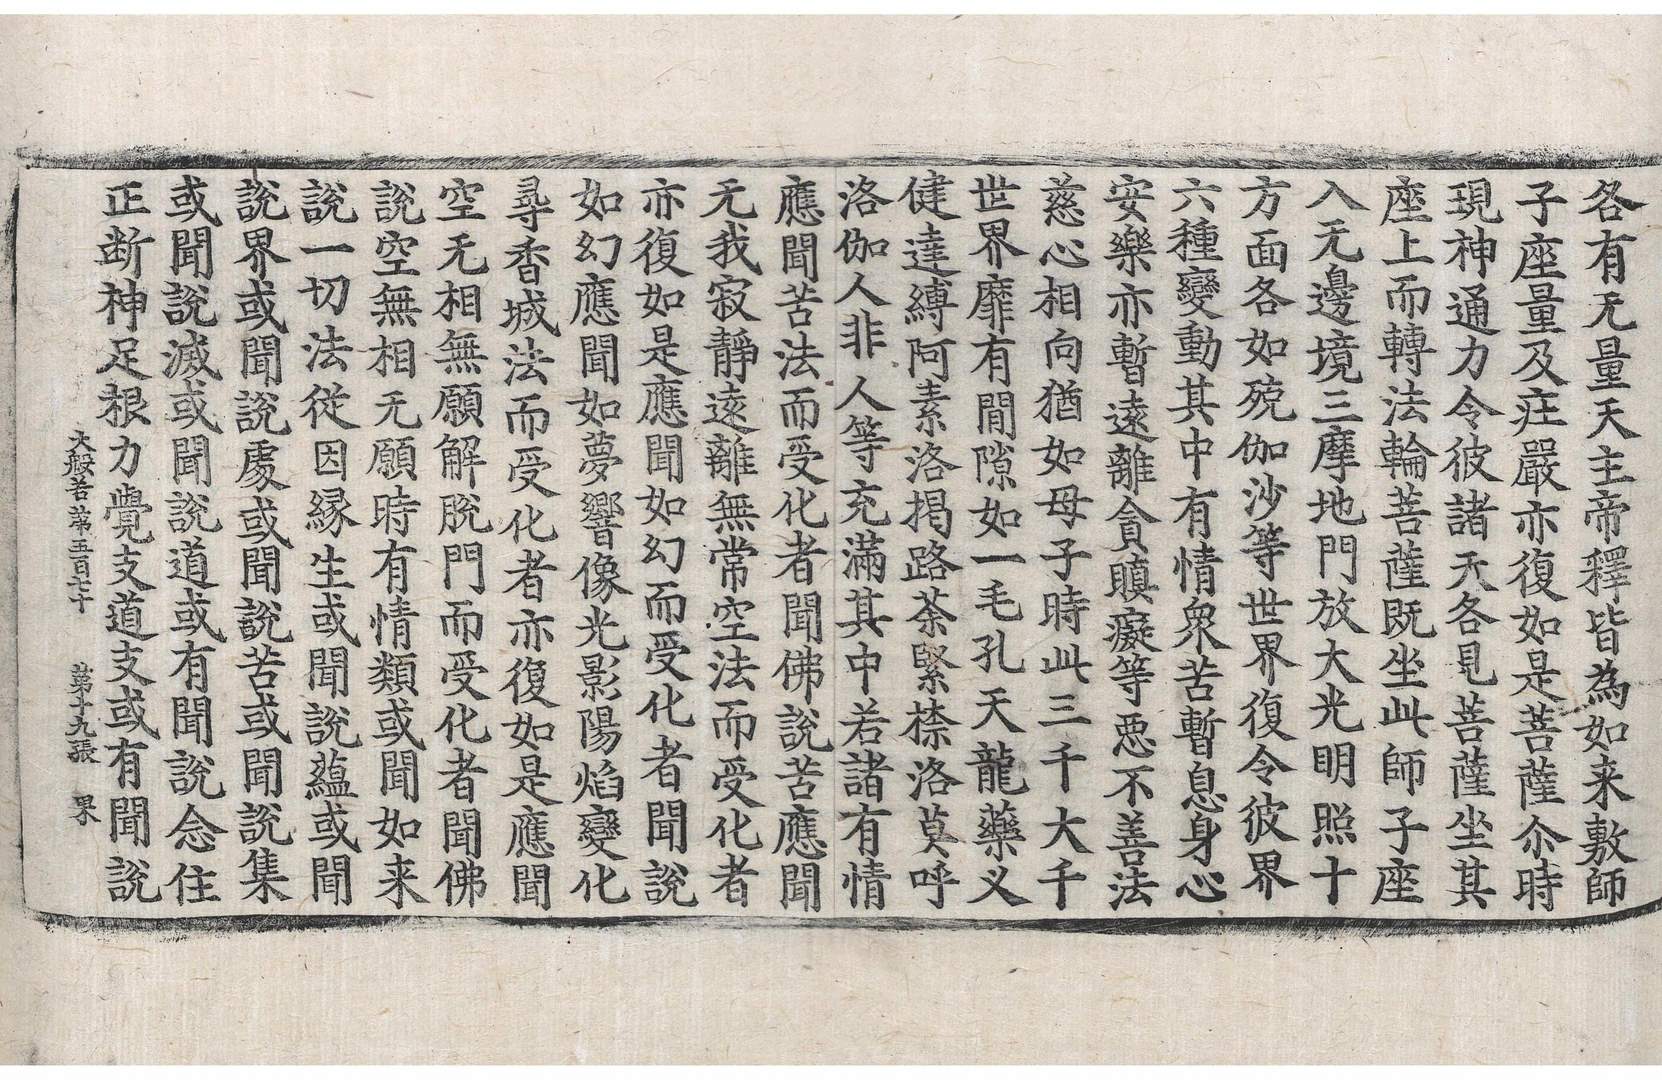 各有无量天主帝釋皆為如来敷師
子座量及庄嚴亦復如是菩薩尒時
現神通力令彼諸天各見菩薩坐其
座上而轉法輪菩薩既坐此師子座
入无邊境三摩地門放大光明照十
方面各如殑伽沙等世界復令彼界
六種變動其中有情衆苦暫息身心
安樂亦暫遠離貪瞋癡等惡不善法
慈心相向猶如母子時此三千大千
世界靡有間隙如一毛孔天龍藥义
健達縛阿素洛揭路荼緊捺洛莫呼
洛伽人非人等充滿其中若諸有情
應聞苦法而受化者聞佛說苦應聞
无我寂靜遠離無常空法而受化者
亦復如是應聞如幻而受化者聞說
如幻應聞如夢響像光影陽焰變化
尋香城法而受化者亦復如是應聞
空无相無願解脫門而受化者聞佛
說空無相无願時有情類或聞如来
說一切法從因縁生或聞說蘊或聞
說界或聞說處或聞說苦或聞說集
或聞說滅或聞說道或有聞說念住
正断神足根力覺支道支或有聞說
大般若第五百七十 第十九張 果